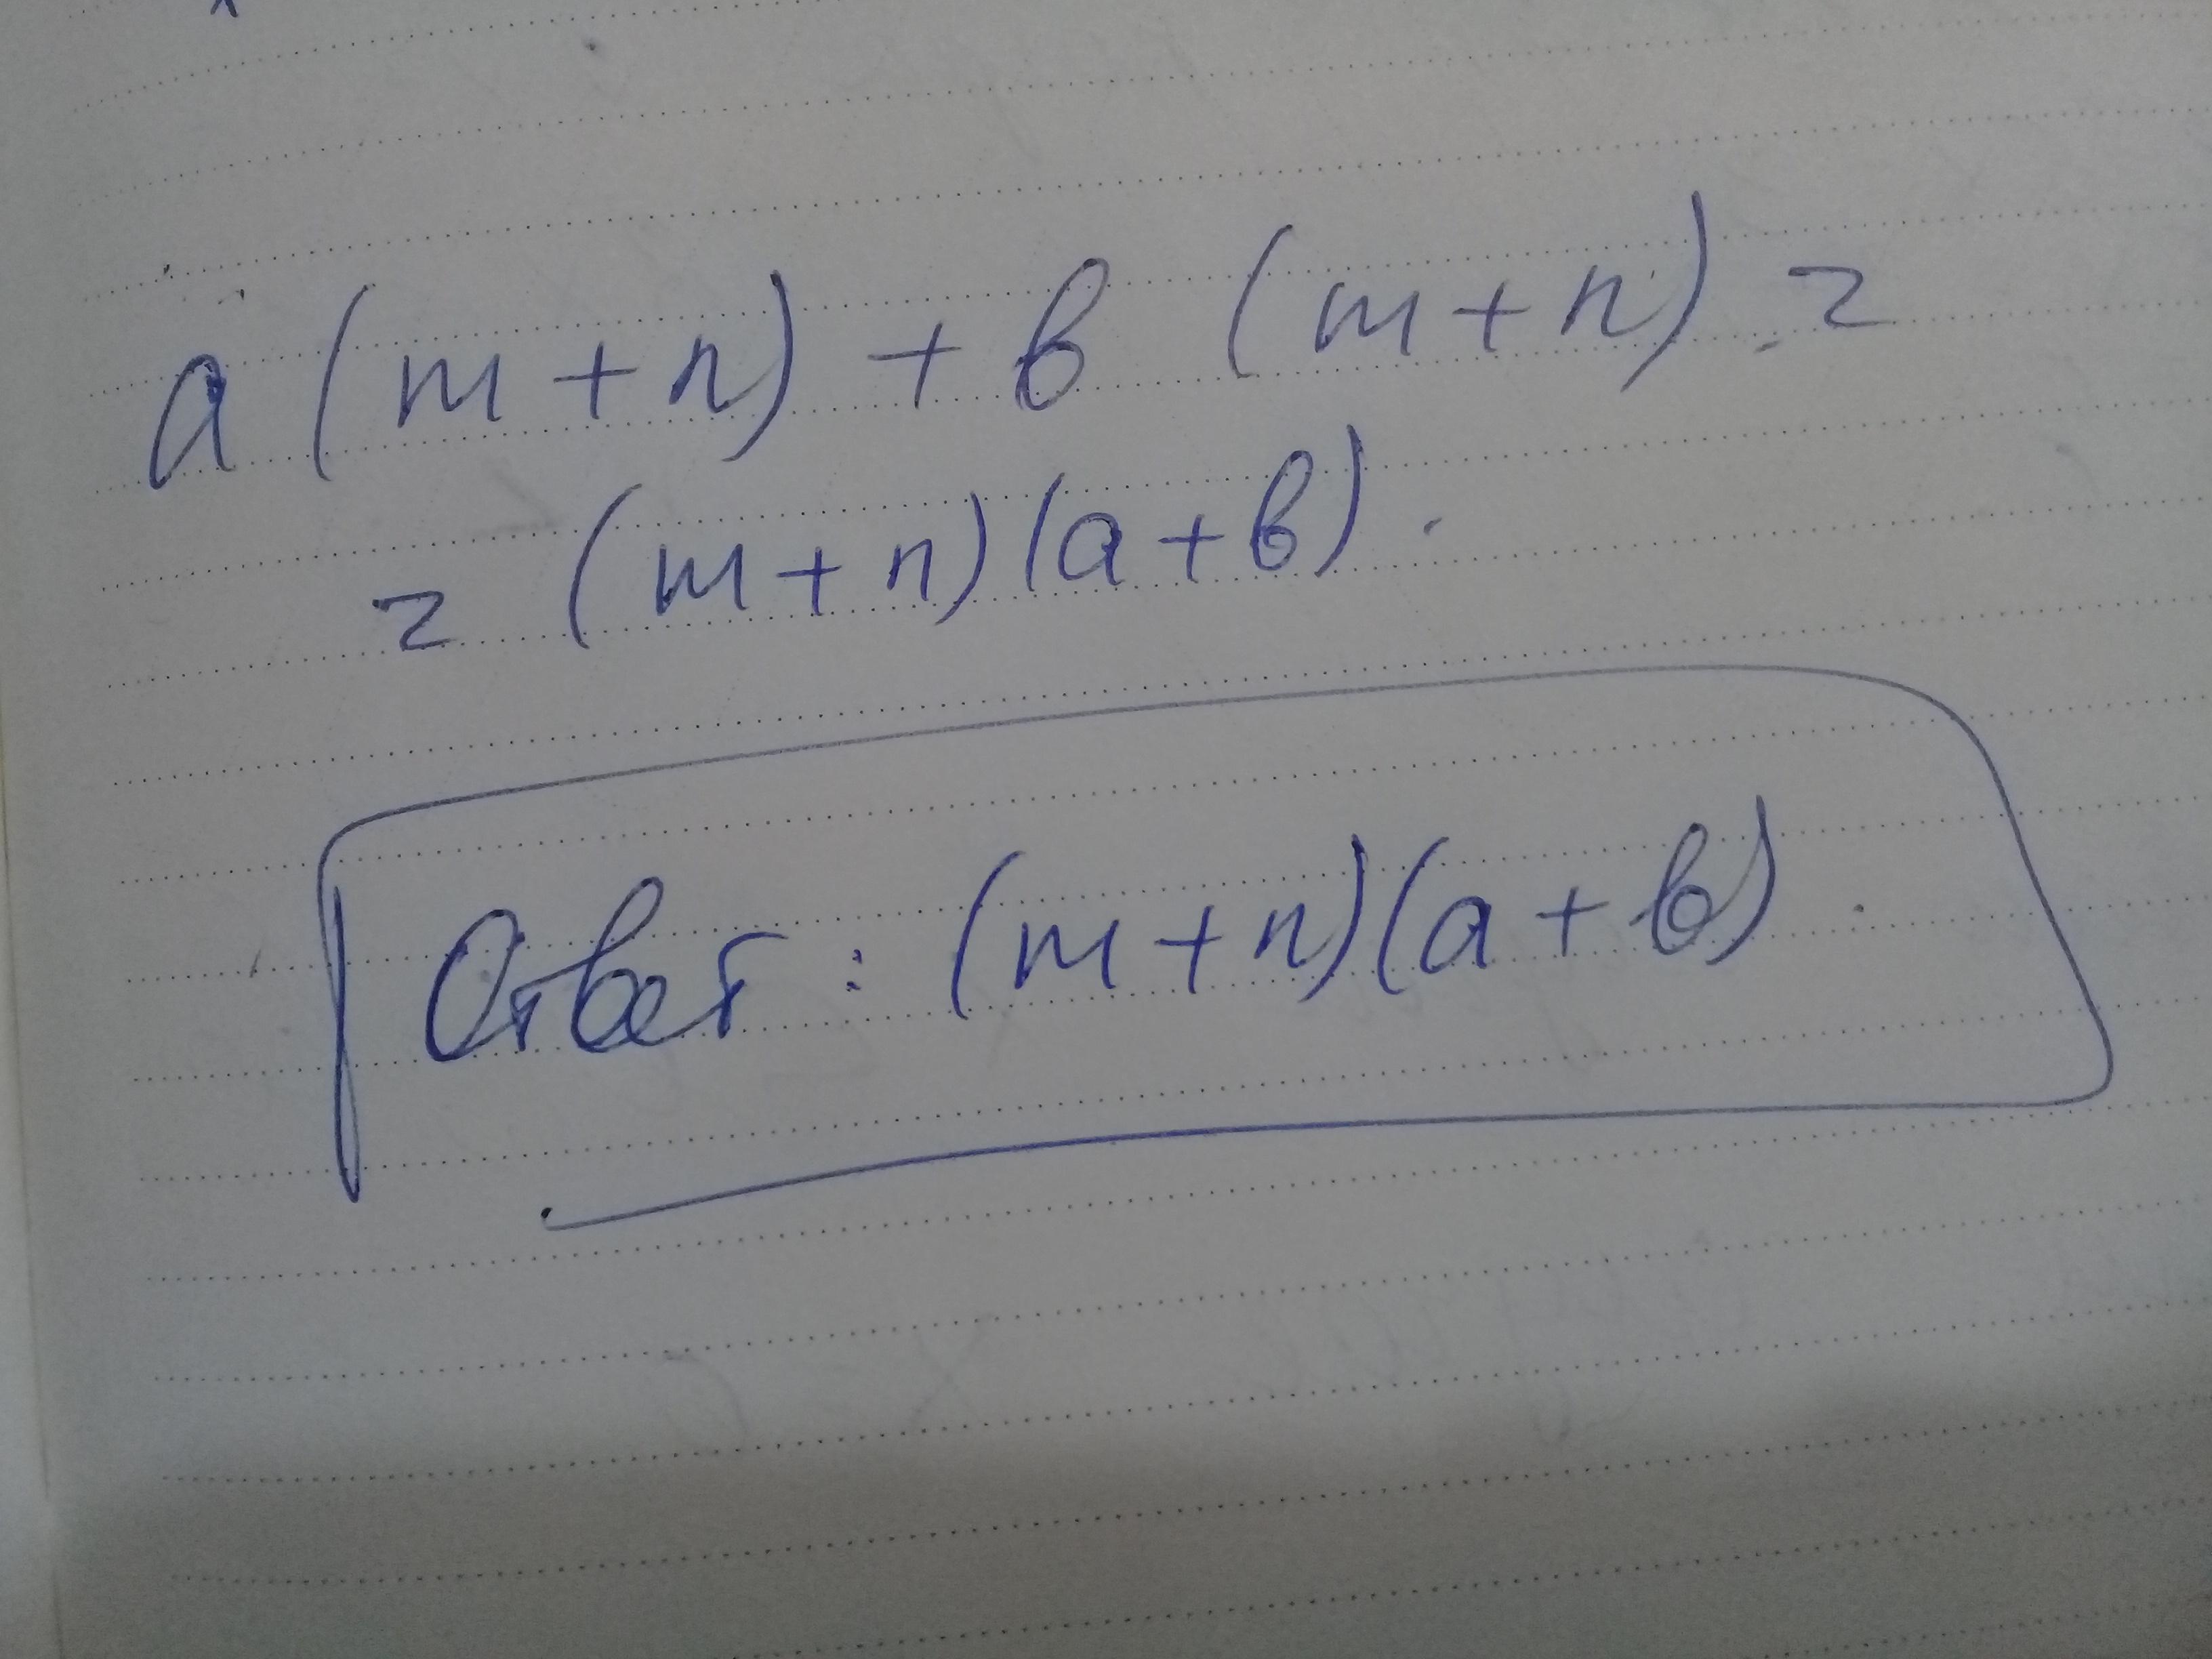 a (m + n) + b (m + n) =
= (m + n)(a + b).
Ответ: (m + n)(a + b).